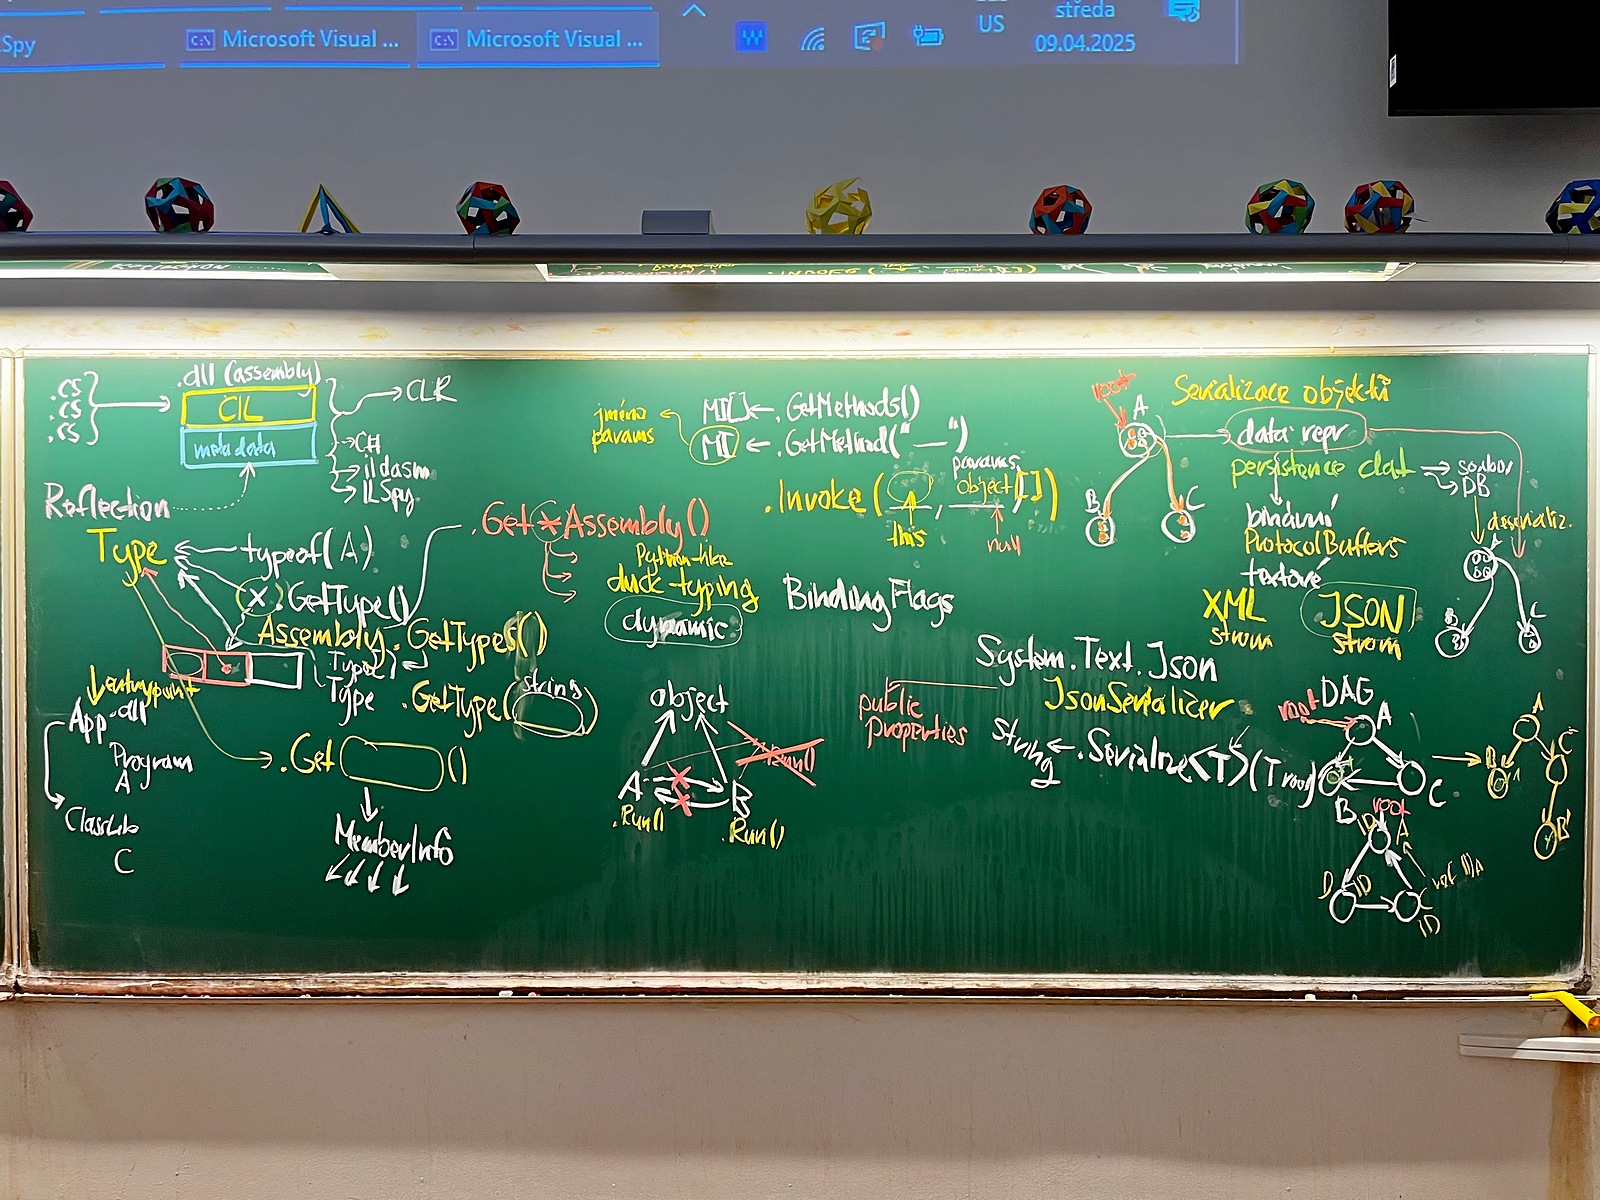 Spy
Microsoft Visual ...
Microsoft Visual ...
US
středa
09.04.2025
.cs
.cs
.cs
.dll (assembly)
CIL
metadata
CLR
C#
ildasm
ILSpy
Reflection
Type
typeof(A)
x.GetType()
Assembly.GetTypes()
Type[]
Type
.GetType(string)
entrypoint
App.dll
Program
A
ClassLib
C
.Get ()
MemberInfo
.Get*Assembly()
Python-like
duck typing
dynamic
jména
params
MI[] ← .GetMethods()
MI ← .GetMethod("—")
params
.Invoke( , object[])
this
null
BindingFlags
object
A
B
.Run()
.Run()
.Run()
Serializace objektů
root
A
B
C
data repr
persistence dat
soubor
DB
binární
ProtocolBuffers
textové
XML
strom
JSON
strom
deserializ.
A
B
C
System.Text.Json
JsonSerializer
public
properties
string ← .Serialize<T>(T root)
DAG
root
A
B
C
A
B
C
B'
root
ID
A
ID
C
ID